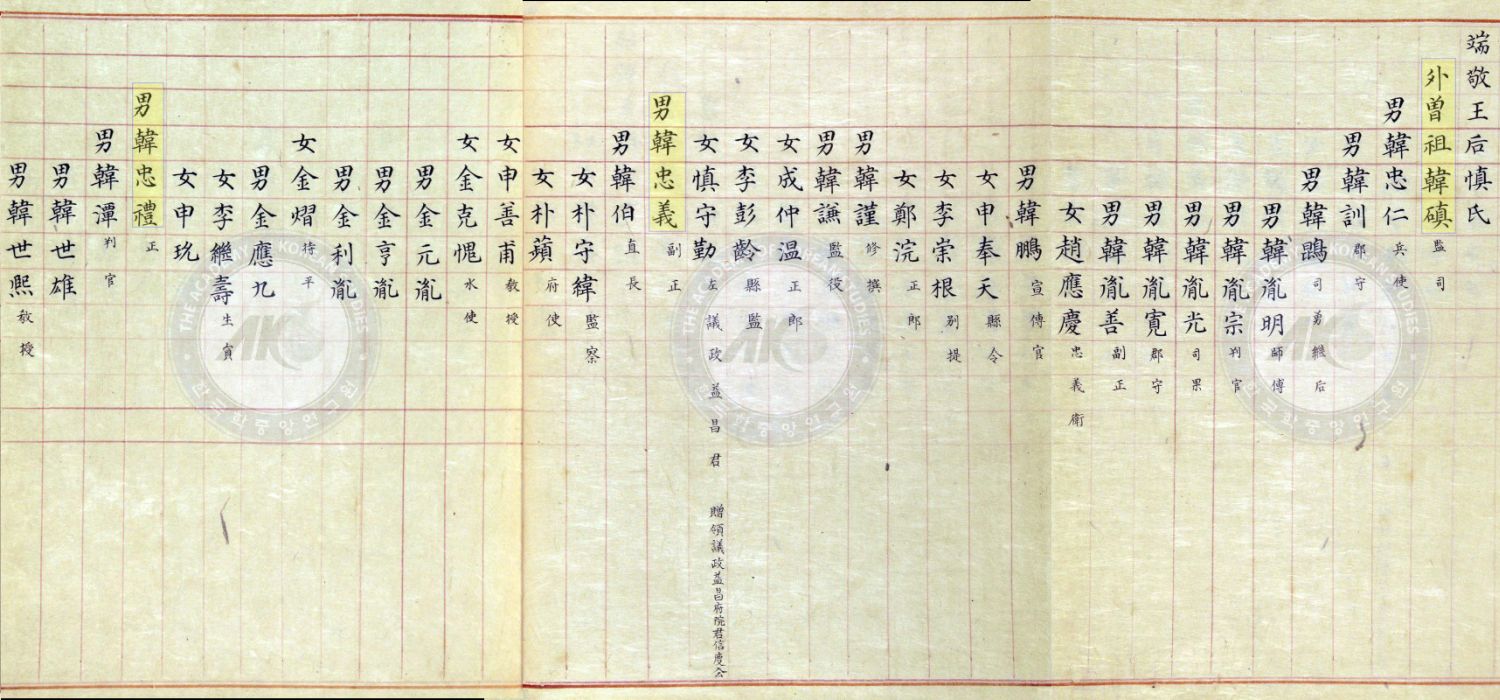 端敬王后慎氏
外曽祖韓磌 監司
男韓忠仁 兵使
男韓訓 郡守
男韓 司勇繼后
男韓胤明 師傅
男韓胤宗 判官
男韓胤光 司果
男韓胤寛 郡守
男韓胤善 副正
女趙應慶 忠義衛
男韓鵬 宣傳官
女申奉天 縣令
女李崇根 别提
女鄭浣 正郎
男韓謹 修撰
男韓謙 監役
女成仲温 正郎
女李彭齡 縣監
女慎守勤 左議政益昌君 贈領議政益昌府院君信度公
男韓忠義 副正
男韓伯 直長
女朴守緯 監察
女朴蘋 府使
女申善甫 教授
女金克愧 水使
男金元胤
男金亨胤
男金利胤
女金熠 持平
男金應九
女李繼壽 生員
女申玧
男韓忠禮 正
男韓潭 判官
男韓世雄
男韓世熙 教授
THE ACADEMY OF KOREAN STUDIES
AKS
한국학중앙연구원
THE ACADEMY OF KOREAN STUDIES
AKS
한국학중앙연구원
THE ACADEMY OF KOREAN STUDIES
AKS
한국학중앙연구원